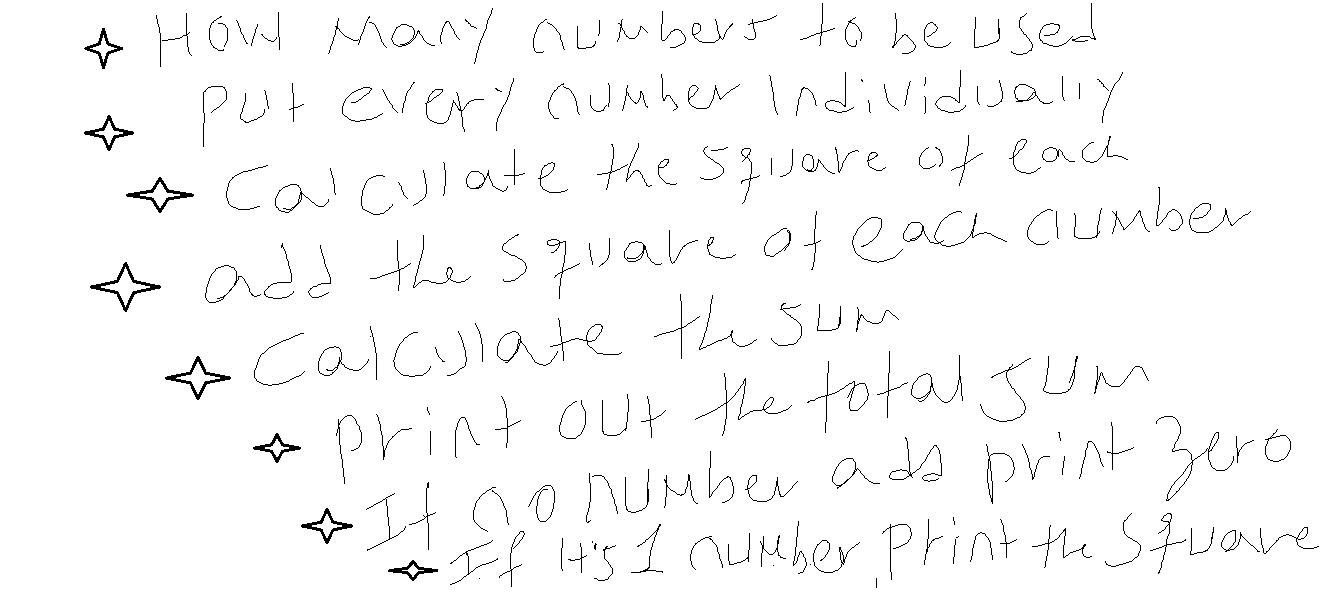 How many numbers to be used
put every number Individually
Calculate the square of each
add the square of each number
Calculate the sum
print out the total sum
If no number add print zero
If it's 1 number, print the square